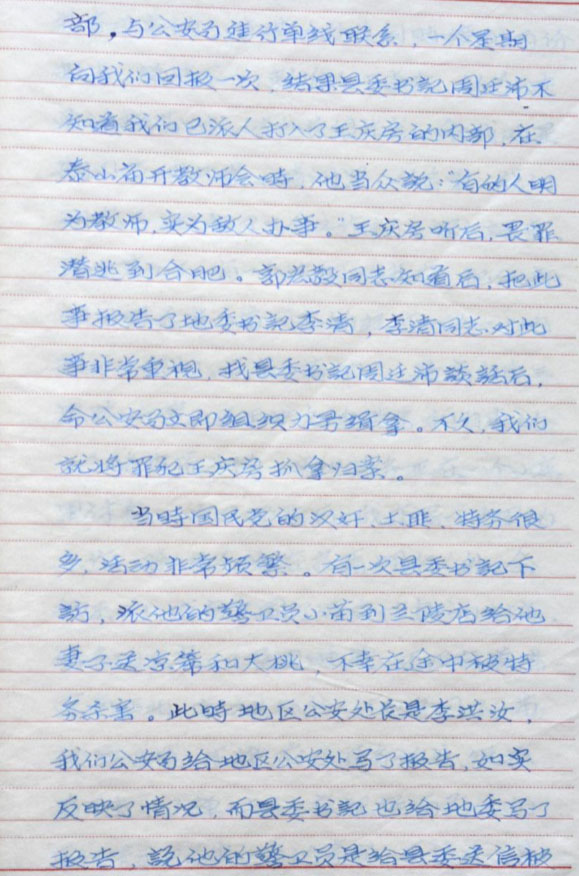 部，与公安局进行单线联系，一个星期
向我们回报一次，结果县委书記周廷沛不
知有我们已派人打入了王庆房的内部，在
泰山庙开教师会時，他当众說："有的人明
为教师，实为敌人办事。"王庆房听后，畏罪
潜逃到合肥。郭宏毅同志知道后，把此
事报告了地委书記李清，李清同志对此
事非常重視，找县委书記周廷沛談話后，
命公安局立即組织力量捕拿。不久，我们
就将罪犯王庆房抓拿归案。
当時国民党的汉奸、土匪、特务很
多，活动非常频繁。有一次县委书記下
訪，派他的警卫员小苗到兰陵店给他
妻子送凉席和大桃，不幸在途中被特
务杀害。此時地区公安处長是李洪汝，
我们公安局给地区公安处写了报告，如实
反映了情况，而县委书記也给地委写了
报告，說他的警卫员是给县委送信被